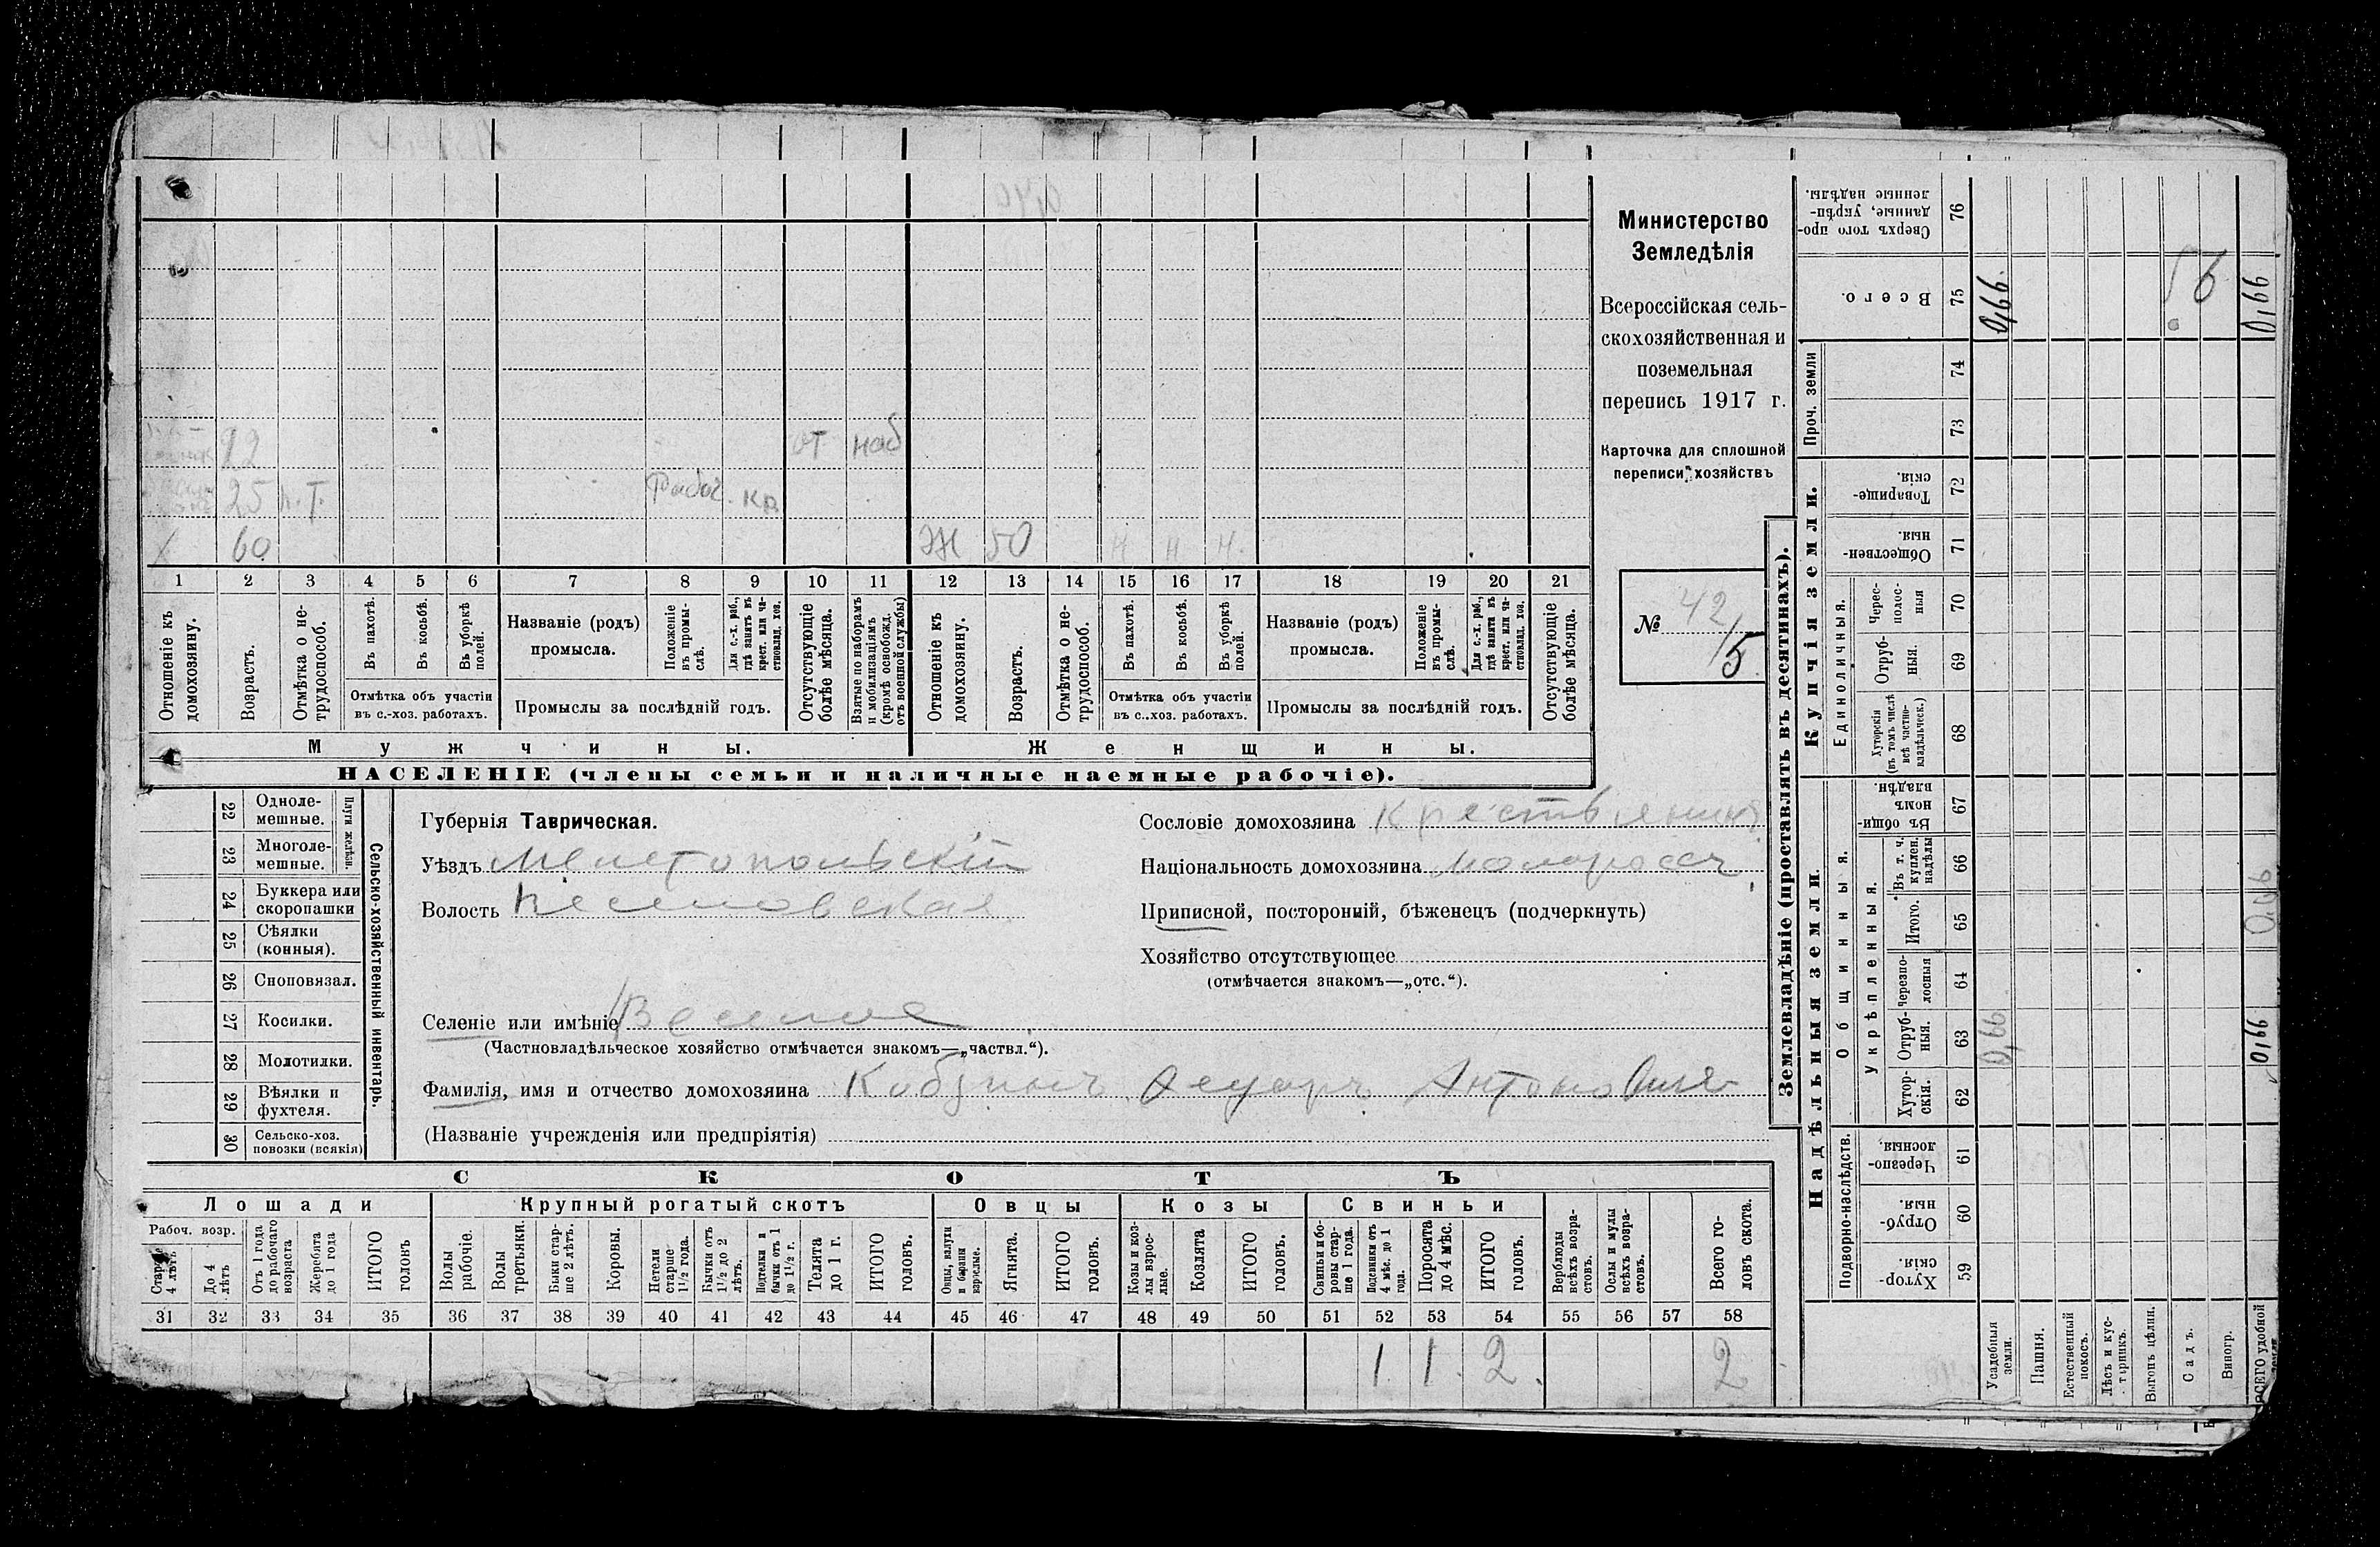 Министерство
Земледѣлія
Всероссійская сель-
скохозяйственная и
поземельная
перепись 1917 г.
Карточка для сплошной
переписи хозяйствъ
№ 42/5
12 от наб
25 н.т. Рабоч. кр.
60 Ж 50 н н н.
1 2 3 4 5 6 7 8 9 10 11 12 13 14 15 16 17 18 19 20 21
Отношеніе къ домохозяину.
Возрастъ.
Отмѣтка о не-трудоспособ.
Въ пахотѣ.
Въ косьбѣ.
Въ уборкѣ полей.
Отмѣтка объ участіи
въ с.-хоз. работахъ.
Названіе (родъ)
промысла.
Положеніе въ промы-слѣ.
Для с.-х. раб., гдѣ занятъ въ крест. или ча-стновлад. хоз.
Промыслы за послѣдній годъ.
Отсутствующіе болѣе мѣсяца.
Взятые по наборамъ и мобилизаціямъ (кромѣ освобожд. отъ военной службы)
Отношеніе къ домохозяину.
Возрастъ.
Отмѣтка о не-трудоспособ.
Въ пахотѣ.
Въ косьбѣ.
Въ уборкѣ полей.
Отмѣтка объ участіи
въ с.-хоз. работахъ.
Названіе (родъ)
промысла.
Положеніе въ промы-слѣ.
Для с.-х. раб., гдѣ занята въ крест. или ча-стновлад. хоз.
Промыслы за послѣдній годъ.
Отсутствующіе болѣе мѣсяца.
Мужчины. Женщины.
НАСЕЛЕНІЕ (члены семьи и наличные наемные рабочіе).
22 Одноле-мешные.
23 Многоле-мешные.
Плуги желѣзн.
24 Буккера или скоропашки
25 Сѣялки (конныя).
26 Сноповязал.
27 Косилки.
28 Молотилки.
29 Вѣялки и фухтеля.
30 Сельско-хоз. повозки (всякія)
Сельско-хозяйственный инвентарь.
Губернія Таврическая.
Уѣздъ Мелитопольскій
Волость Веселовская
Селеніе или имѣніе Веселое
(Частновладѣльческое хозяйство отмѣчается знакомъ—„частвл.“).
Фамилія, имя и отчество домохозяина Антонович
(Названіе учрежденія или предпріятія)
Сословіе домохозяина крестьянинъ
Національность домохозяина малороссъ
Приписной, посторонній, бѣженецъ (подчеркнуть)
Хозяйство отсутствующее
(отмѣчается знакомъ—„отс.“).
СКОТЪ
Лошади Крупный рогатый скотъ Овцы Козы Свиньи
Рабоч. возр.
Старше 4 лѣтъ
До 4 лѣтъ
Отъ 1 года до рабочаго возраста
Жеребята до 1 года
ИТОГО головъ
Волы рабочіе.
Волы третьяки.
Быки стар-ше 2 лѣтъ.
Коровы.
Нетели старше 1½ года.
Бычки отъ 1½ до 2 лѣтъ.
Подтелки и бычки отъ 1 до 1½ г.
Телята до 1 г.
ИТОГО головъ.
Овцы, валухи и бараны взрослые.
Ягнята.
ИТОГО головъ.
Козы и коз-лы взрос-лые.
Козлята
ИТОГО головъ.
Свиньи и бо-ровы стар-ше 1 года.
Подсвинки отъ 4 мѣс. до 1 года.
Поросята до 4 мѣс.
ИТОГО головъ.
Верблюды всѣхъ возра-стовъ.
Ослы и мулы всѣхъ возра-стовъ.
Всего го-ловъ скота.
31 32 33 34 35 36 37 38 39 40 41 42 43 44 45 46 47 48 49 50 51 52 53 54 55 56 57 58
1 1 2. 2
Землевладѣніе (проставлять въ десятинахъ).
Купчія земли.
Надѣльныя земли.
Сверхъ того про-данные, укрѣп-ленные надѣлы. 76
Всего. 75 0,66. 56 0,66
Проч. земли 74
73
Товарище-скія. 72
Обществен-ныя. 71
Единоличныя.
Черес-полос-ныя 70
Отруб-ныя. 69
Хуторскія (въ томъ числѣ всѣ частно-владѣльческ.) 68
Общинныя.
Въ общи-номъ владѣн. 67
Укрѣпленныя.
Въ т. ч. куплен. надѣлы 66
Итого. 65 0,66
Черезпо-лосныя 64
Отруб-ныя. 63 0,66 0,66
Хутор-скія. 62
Подворно-наслѣдств.
Черезпо-лосныя. 61
Отруб-ныя. 60
Хутор-скія. 59
Усадебныя земли.
Пашня.
Естественный покосъ.
Лѣсъ и кус-тарникъ.
Выгонъ цѣлин.
Садъ.
Виногр.
ВСЕГО удобной земли